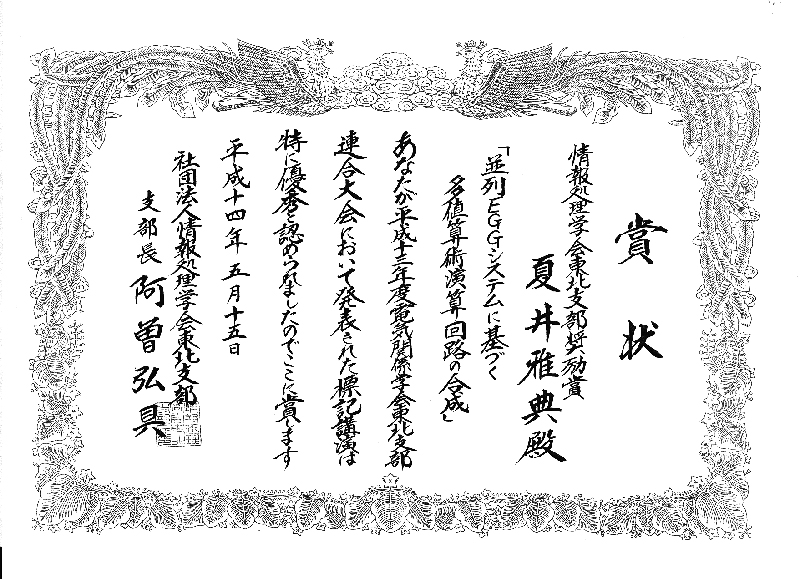 賞状
情報処理学会東北支部奨励賞
夏井雅典殿
「並列EGGシステムに基づく
多値算術演算回路の合成」
あなたが平成十三年度電気関係学会東北支部
連合大会において発表された標記講演は
特に優秀と認められましたのでここに賞します
平成十四年五月十五日
社団法人情報処理学会東北支部
支部長 阿曽弘具